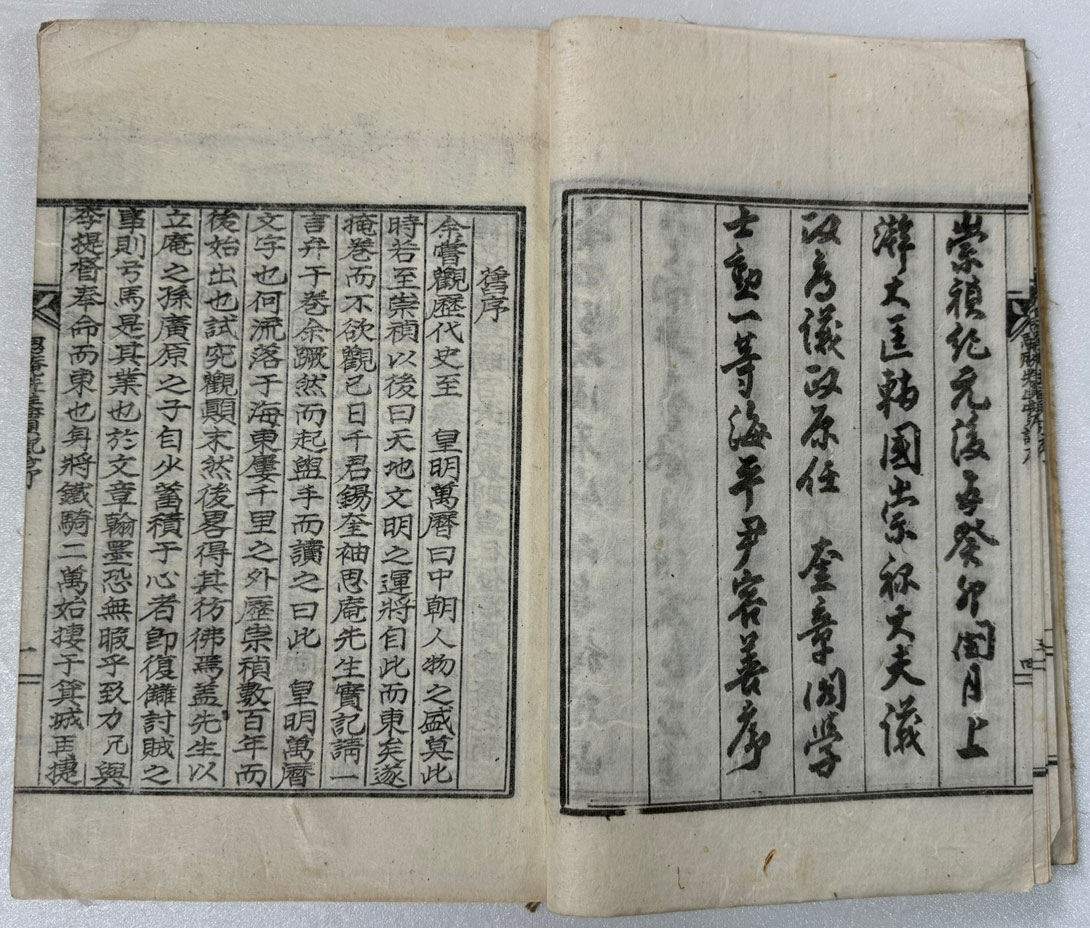 崇禎紀元後五癸卯閏月上
澣大匡輔國崇祿大夫議
政府議政原任　奎章閣學
士勳一等海平尹容善序
舊序
余嘗觀歷代史至　皇明萬曆曰中朝人物之盛莫此
時若至崇禎以後曰天地文明之運將自此而東矣遂
掩卷而不欲觀已日千君錫奎袖思庵先生實記請一
言弁于卷余蹶然而起盥手而讀之曰此　皇明萬曆
文字也何流落于海東屢千里之外歷崇禎數百年而
後始出也試究觀顚末然後畧得其彷彿焉盖先生以
立庵之孫廣原之子自少蓄積于心者卽復讎討賊之
事則弓馬是其業也於文章翰墨恐無暇乎致力兄與
李提督奉命而東也身將鐵騎二萬始捷于箕城再捷
思庵先生實記序
一
四